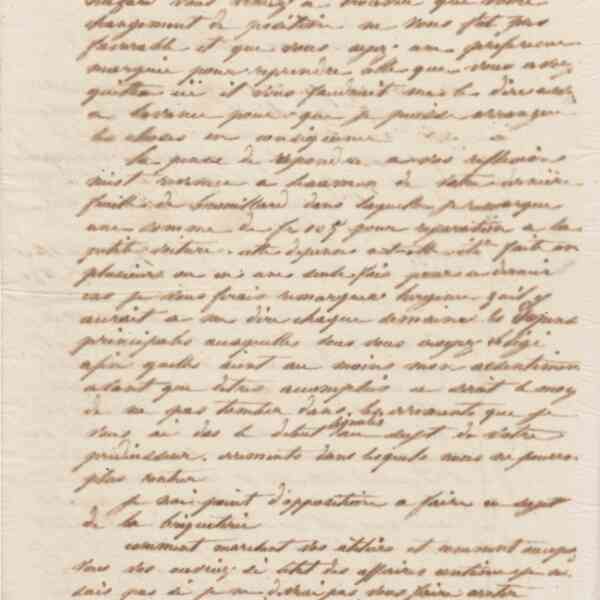 vous veniez a que votre
changement de position ne vous fut pas
favorable et que vous ayez une préférence
marquée pour reprendre celle que vous avez
quittée ici il vous faudrait me le dire
a lavance pour que je puisse arranger
les choses en conséquence
La de répondre a vos réflexions
a de votre dernière
feuille de dans laquelle je remarque
une somme de fr 105 pour réparation a la
petite voiture. cette dépense a t-elle été faite en
plusieurs ou en une seule fois pour a
cas je vous ferais remarquer quil y
aurait a me dire chaque semaine les dépenses
principales auxquelles vous vous croyez obligé
afin quelles aient au moins mon assentiment
avant que detre accomplies ce serait le moyen
de ne pas tomber dans les errements que je
vous ai dès le début signalés au sujet de votre
prédécesseur. errements dans lesquels nous ne pouvons
plus rentrer
je nai point d'opposition a faire au sujet
de la briqueterie
comment marchent vos ateliers et comment occupez
vous vos ouvriers. si létat des affaires continue je ne
sais pas si je ne devrai pas vous faire